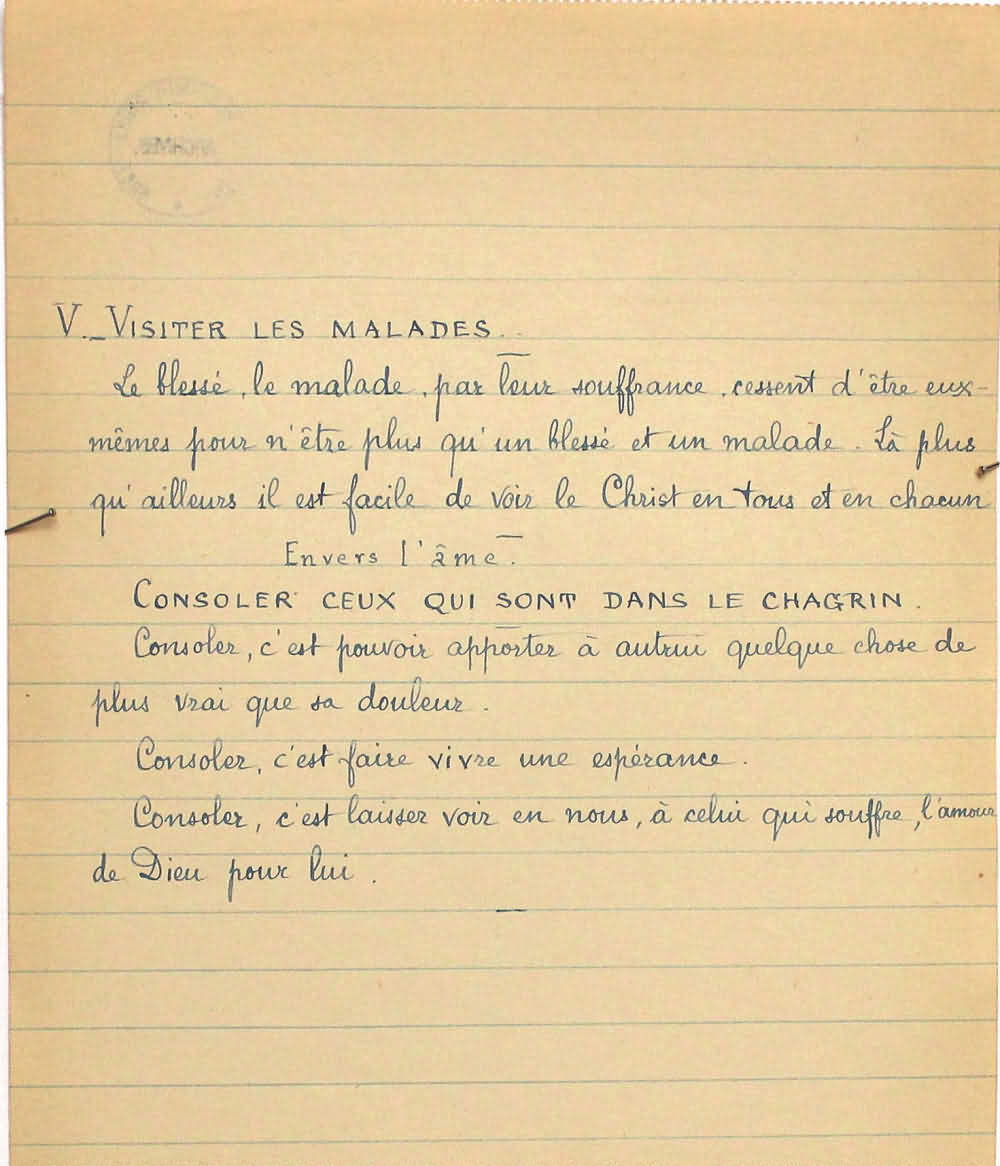 V._VISITER LES MALADES.
Le blessé, le malade, par leur souffrance, cessent d'être eux-
mêmes pour n'être plus qu'un blessé et un malade. Là plus
qu'ailleurs il est facile de voir le Christ en tous et en chacun
Envers l'âme.
CONSOLER CEUX QUI SONT DANS LE CHAGRIN.
Consoler, c'est pouvoir apporter à autrui quelque chose de
plus vrai que sa douleur.
Consoler, c'est faire vivre une espérance.
Consoler, c'est laisser voir en nous, à celui qui souffre, l'amour
de Dieu pour lui.